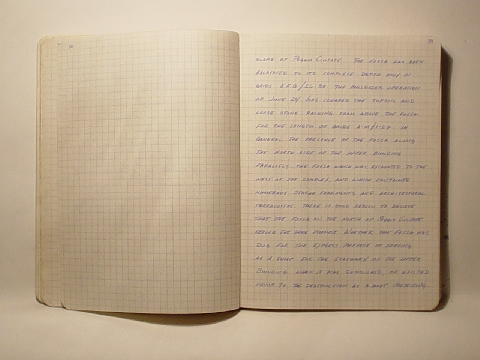 slope of Poggio Civitate. The fossa has been
excavated to its complete depth only in
grids
of June 24, has cleared the topsoil and
loose stone packing from above the fossa
for the length of grids
general the presence of the fossa along
the north side of the upper building
parallels the fossa which was excavated to the
west of the complex, and which contained
numerous statue fragments and architectural
terracottas. There is good reason to believe
that the fossa on the north of Poggio Civitate
served the same purpose. Whether that fossa was
dug for the express purpose of serving
as a dump for the stonework of the upper
building when it was demolished, or existed
prior to the destruction as a moat